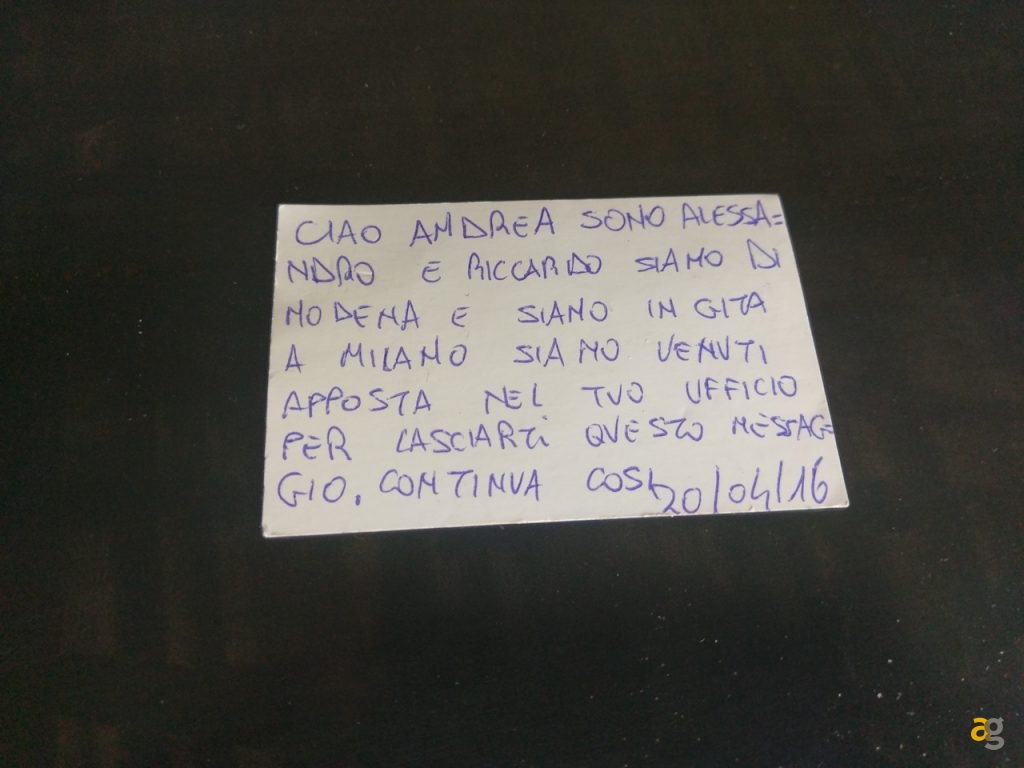 CIAO ANDREA SONO ALESSA=
NDRO E RICCARDO SIAMO DI
MODENA E SIAMO IN GITA
A MILANO SIAMO VENUTI
APPOSTA NEL TUO UFFICIO
PER LASCIARTI QUESTO MESSAG=
GIO. CONTINVA COSI 20/04/16
ag